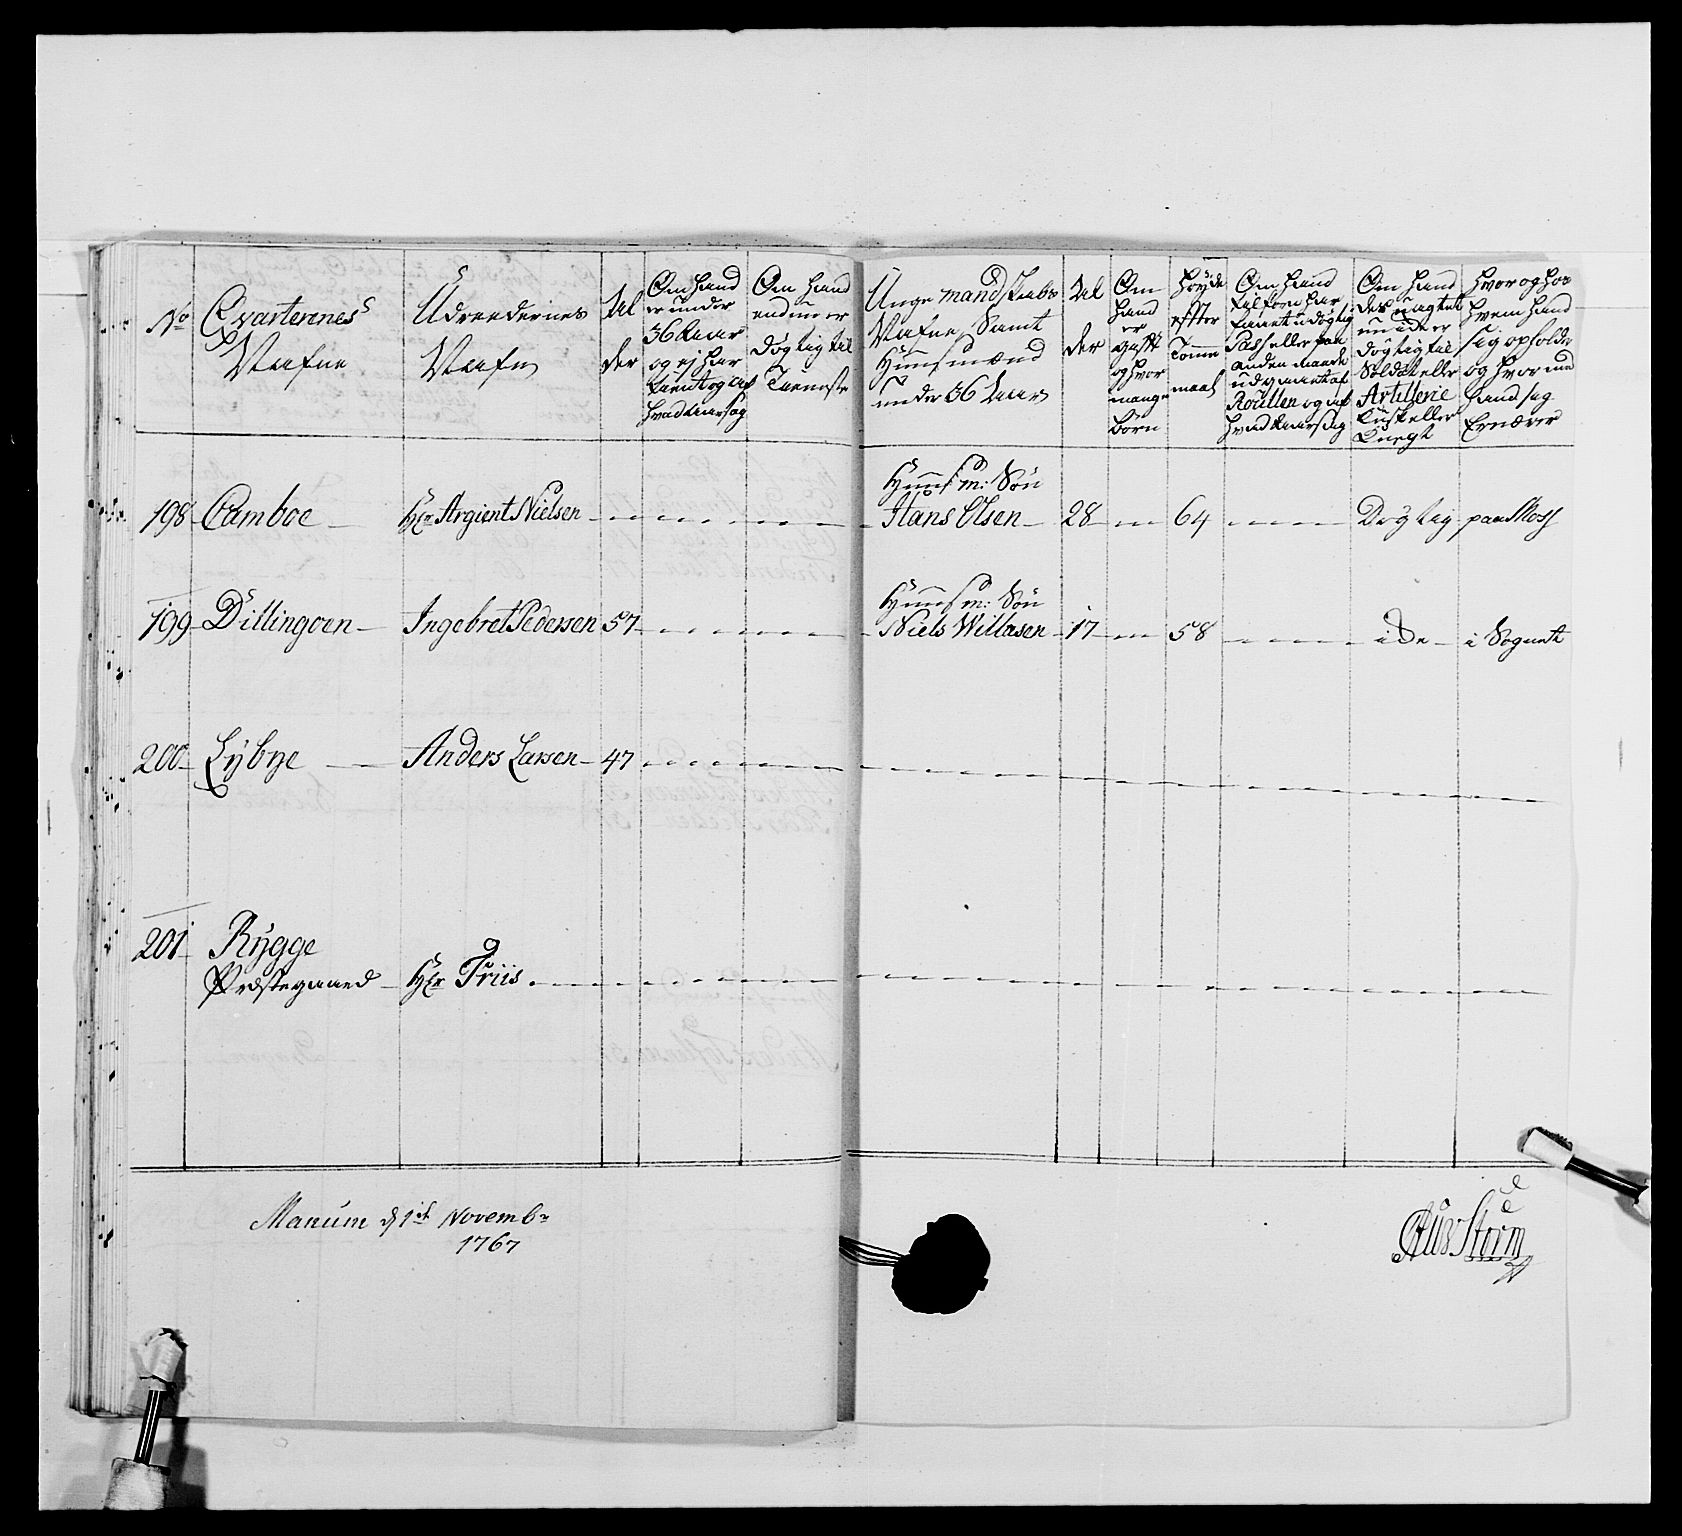 No
Qvarterenes
Nafne
Udreedernes
Nafn
Al
der
Om hand
er under
36 Aar
og ej har
tient og af
hvad Aarsag
Om hand
endnu er
dögtig til
Tieneste
Unge mandskabs
Nafne, Samt
Huusmænd
under 36 Aar
Al
der
Om
hand
er
gift
og hvor
mange
börn
höyde
efter
Tomme
maal
Om hand
tilforn har
faaet udögtig
Pas eller paa
anden maade
udgaaet af
Roullen og af
hvad Aarsag
Om hand
des uagtet
nu ide er
dögtig til
Soldat eller
Artillerie
Kusk eller
Knegt
hvor og hos
hvem hand
sig opholder
og hvor med
hand sig
Ernærer
198 Camboe Hr Argient Nielsen Huusm: Sön
Hans Olsen 28 64 Dögtig paa Moss
199 Dillingöen Ingebret Pedersen 57 Huusm: Sön
Niels Willasen 17 58 i De i Sognet
200 Lÿbÿe Anders Larsen 47
201 Rÿgge
Præstegaard Hr Friis
Manum d 1st Novembr
1767
Storm